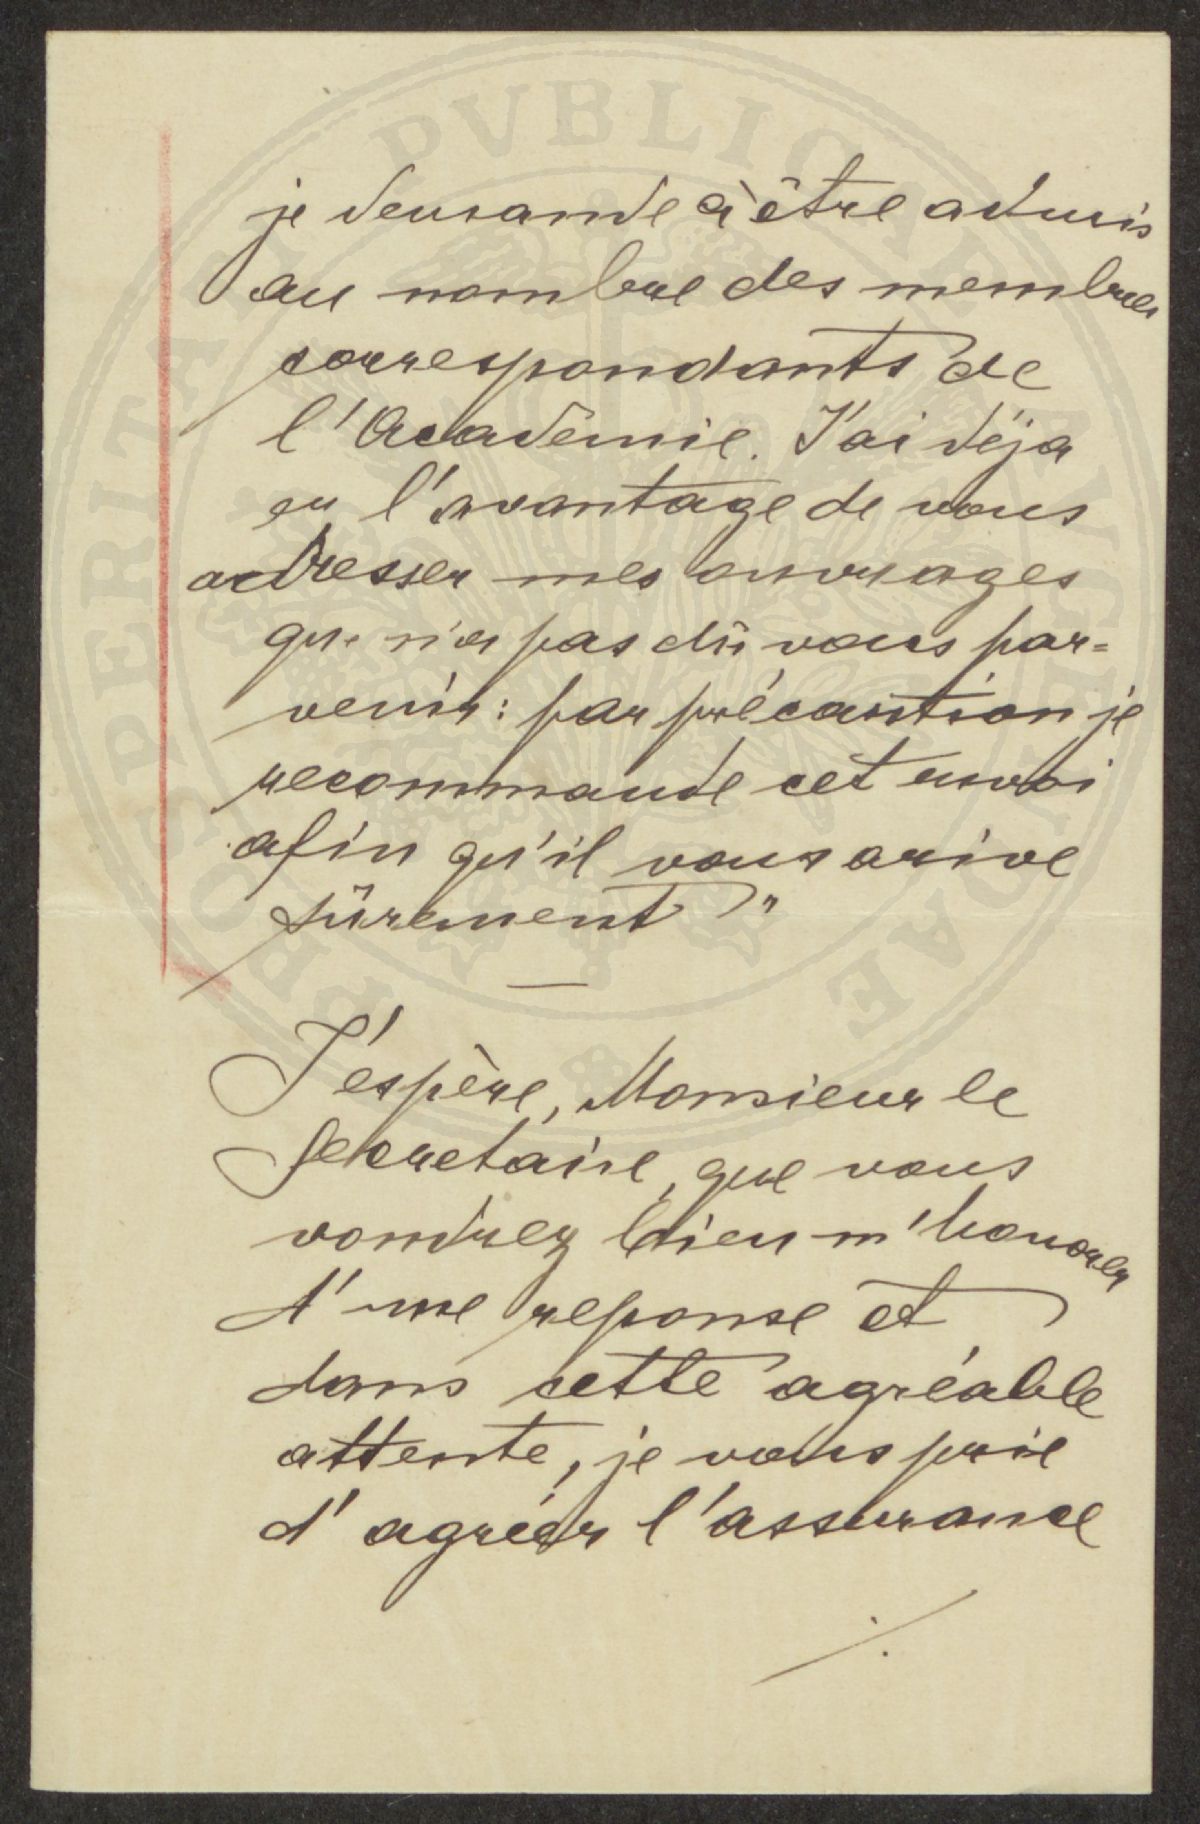 je demande à être admis
au nombre des membres
correspondants de
l'Académie. J'ai déja
eu l'avantage de vous
adresser mes ouvrages
que n'a pas dû vous par=
venir: par précaution je
recommande cet envoi
afin qu'il vous arive
sûrement"
J'espère, Monsieur le
Secretaire, que vous
voudrez bien m'honorer
d'une reponse et
dans cette agréable
attente, je vous prie
d'agréer l'assurance
./.
PROSPERITATI PVBLICAE AVGENDAE